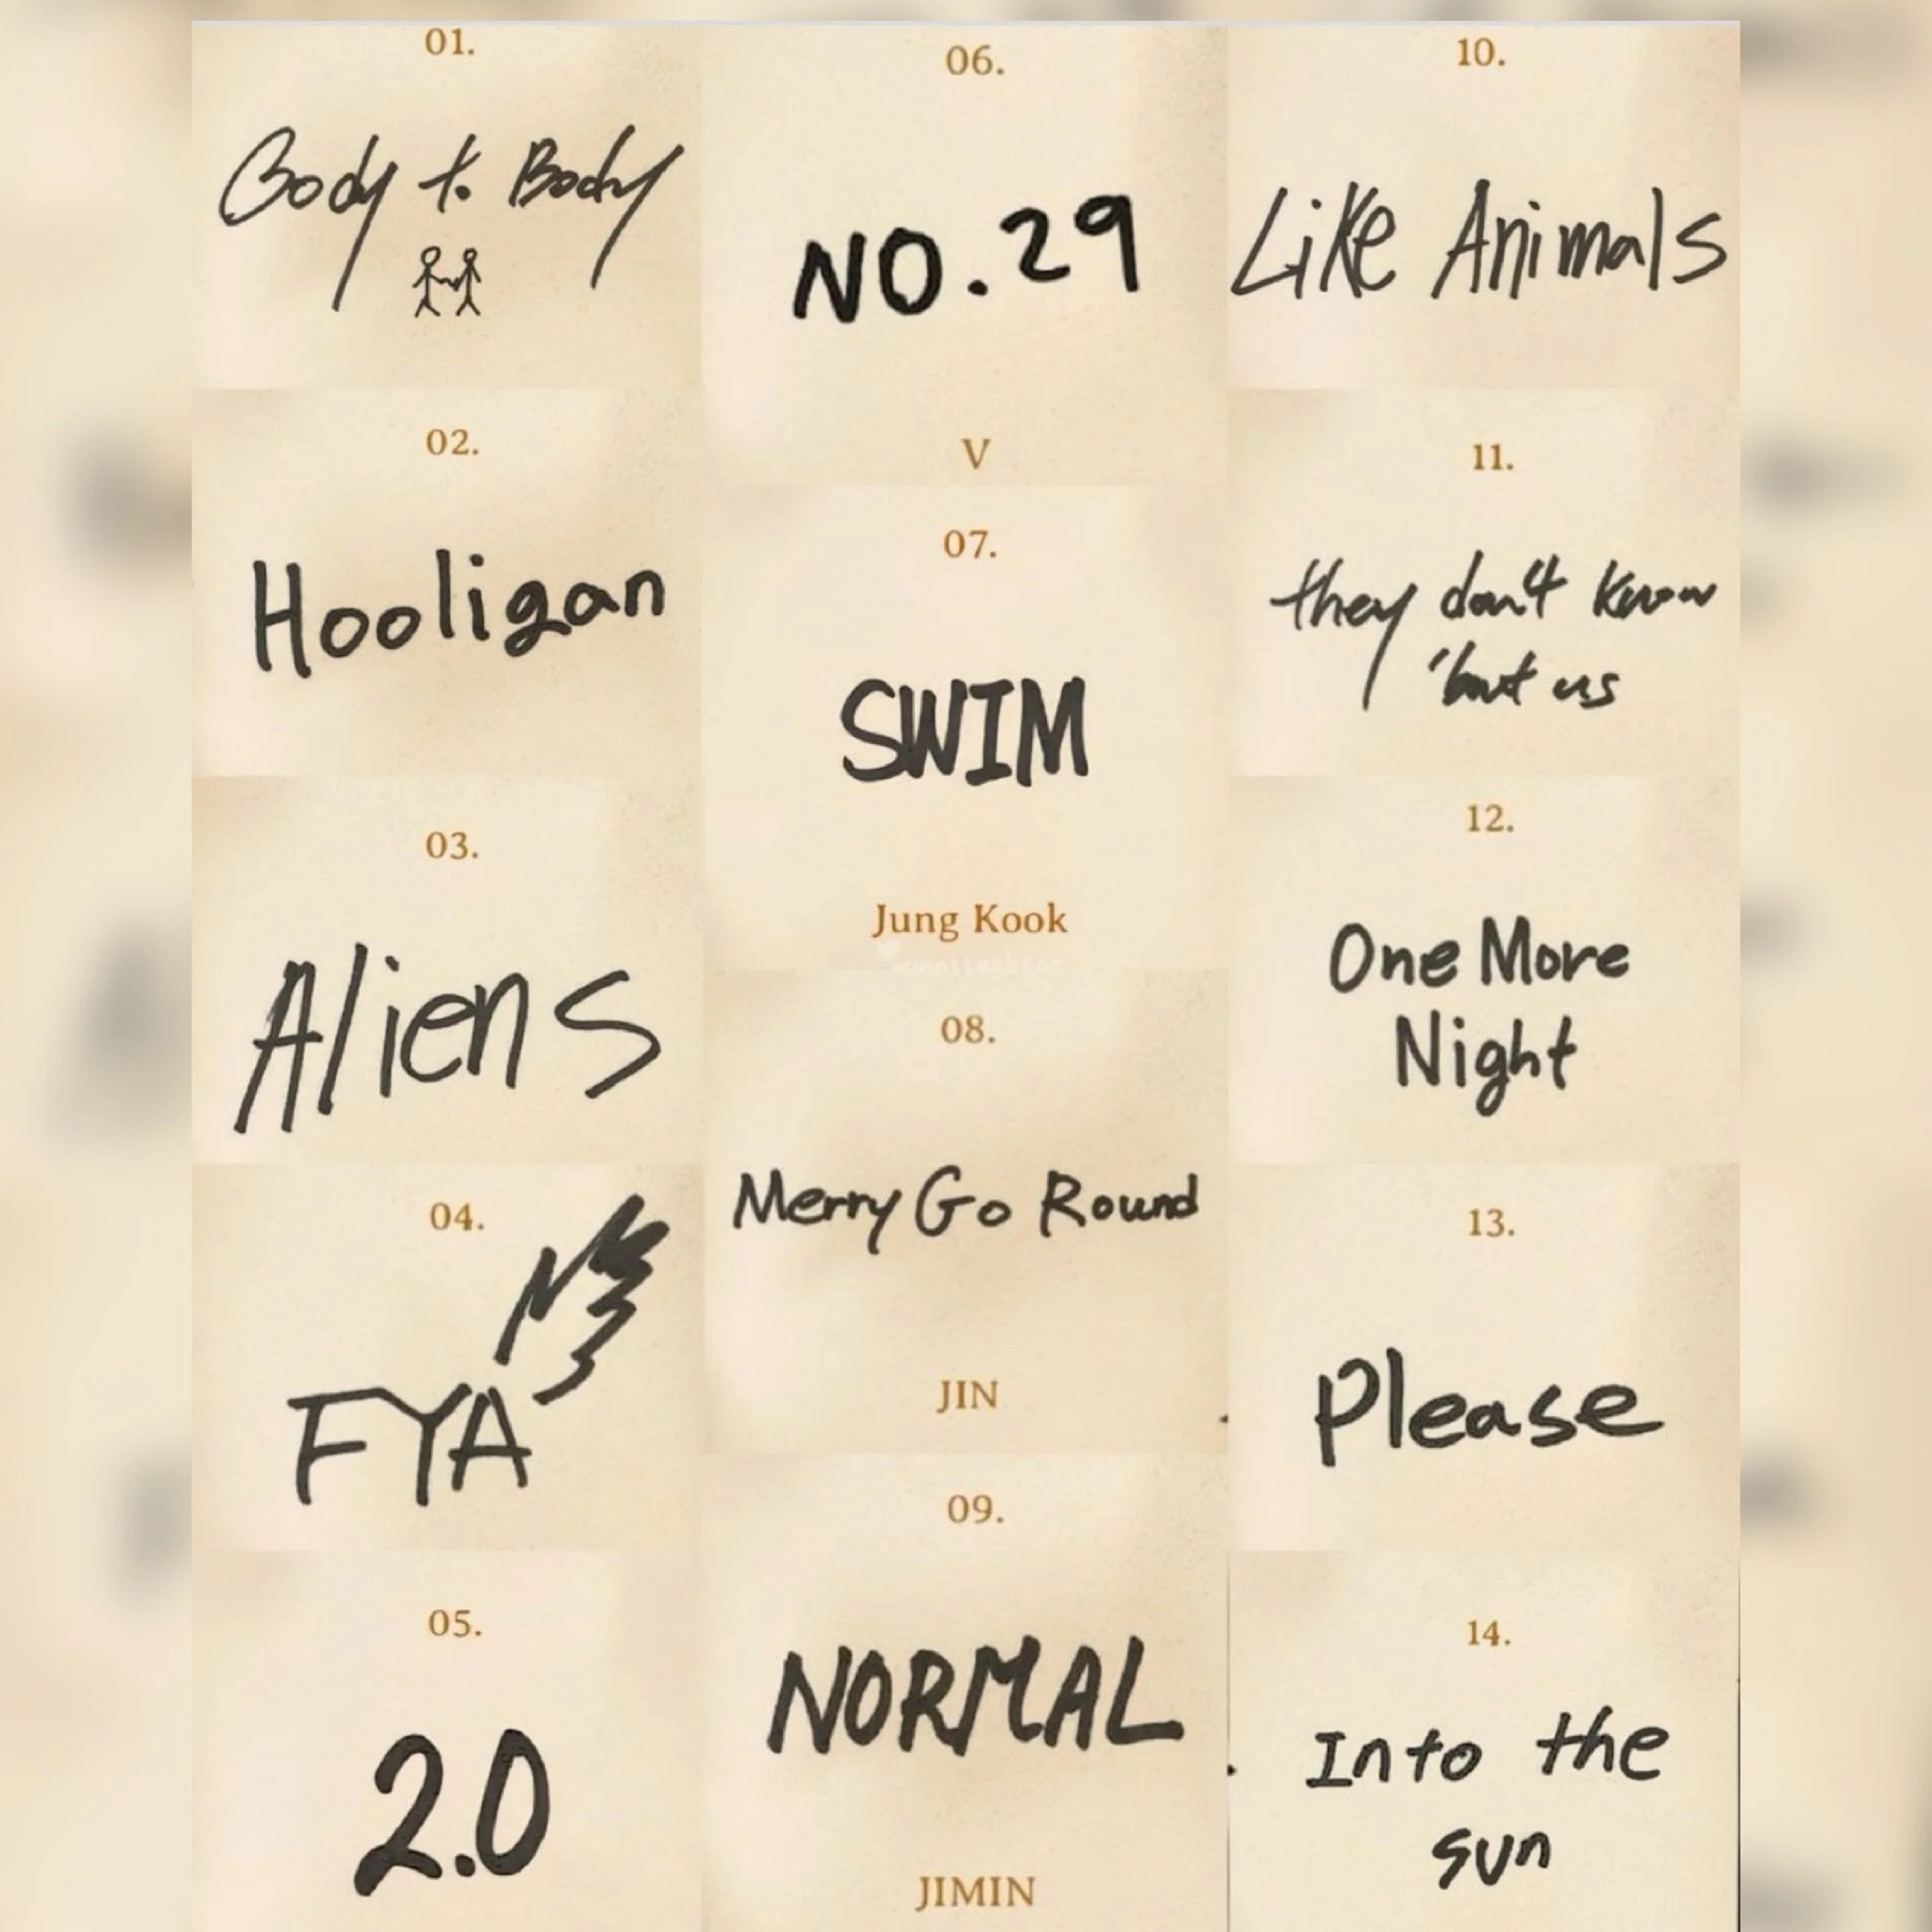 01.
Body to Body
02.
Hooligan
03.
Aliens
04.
FYA
05.
2.0
06.
NO.29
V
07.
SWIM
Jung Kook
08.
Merry Go Round
JIN
09.
NORMAL
JIMIN
10.
Like Animals
11.
they don't know
'bout us
12.
One More
Night
13.
Please
14.
Into the
sun